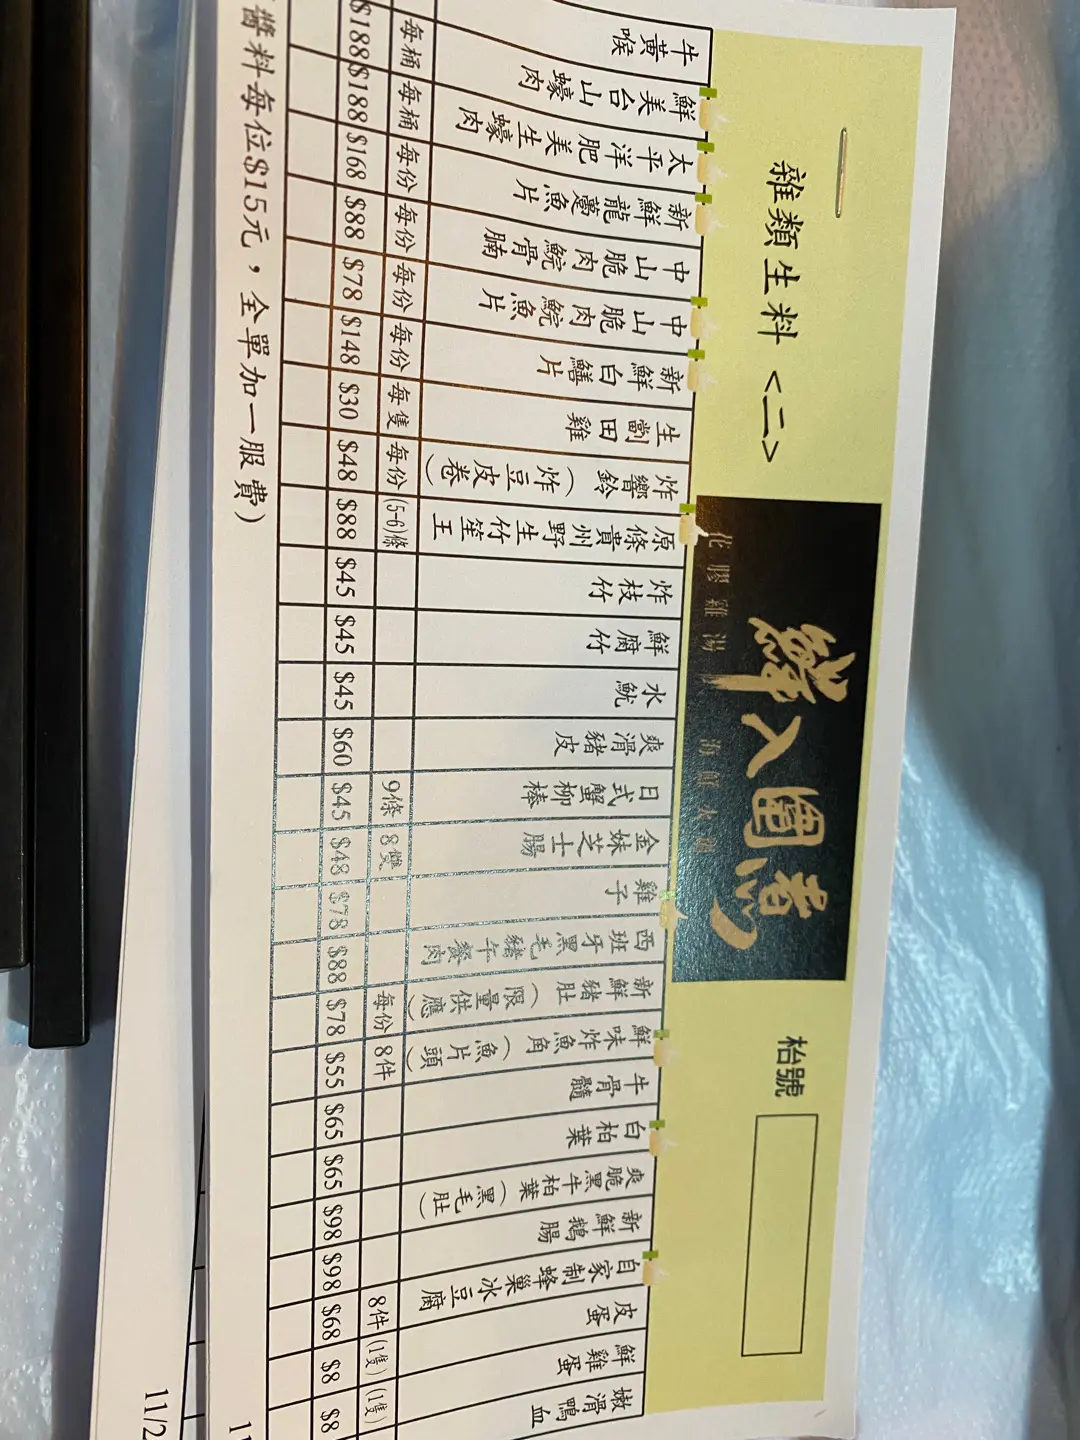 雜類生料 <二>
鮮入圍煮
花膠雞湯 海鮮火鍋
枱號
牛黃喉
鮮美台山蠔肉
太平洋肥美生蠔肉
新鮮龍躉魚片
中山脆肉鯇骨腩
中山脆肉鯇魚片
新鮮白鱔片
生劏田雞
炸響鈴(炸豆皮卷)
原條貴州野生竹笙王
炸枝竹
鮮腐竹
水魷
爽滑豬皮
日式蟹柳棒
金妹芝士腸
雞子
西班牙黑毛豬午餐肉
新鮮豬肚(限量供應)
鮮味炸魚角(魚片頭)
牛骨髓
白柏葉
爽脆黑牛柏葉(黑毛肚)
新鮮鵝腸
自家制蜂巢冰豆腐
皮蛋
鮮雞蛋
嫩滑鴨血
每桶 每桶 每份 每份 每份 每份 每隻 每份 (5-6)條 9條 8雙 每份 8件 8件 (1隻) (1隻)
$188 $188 $168 $88 $78 $148 $30 $48 $88 $45 $45 $45 $60 $45 $48 $78 $88 $78 $55 $65 $65 $98 $98 $68 $8 $8
醬料每位$15元，全單加一服費)
11/2